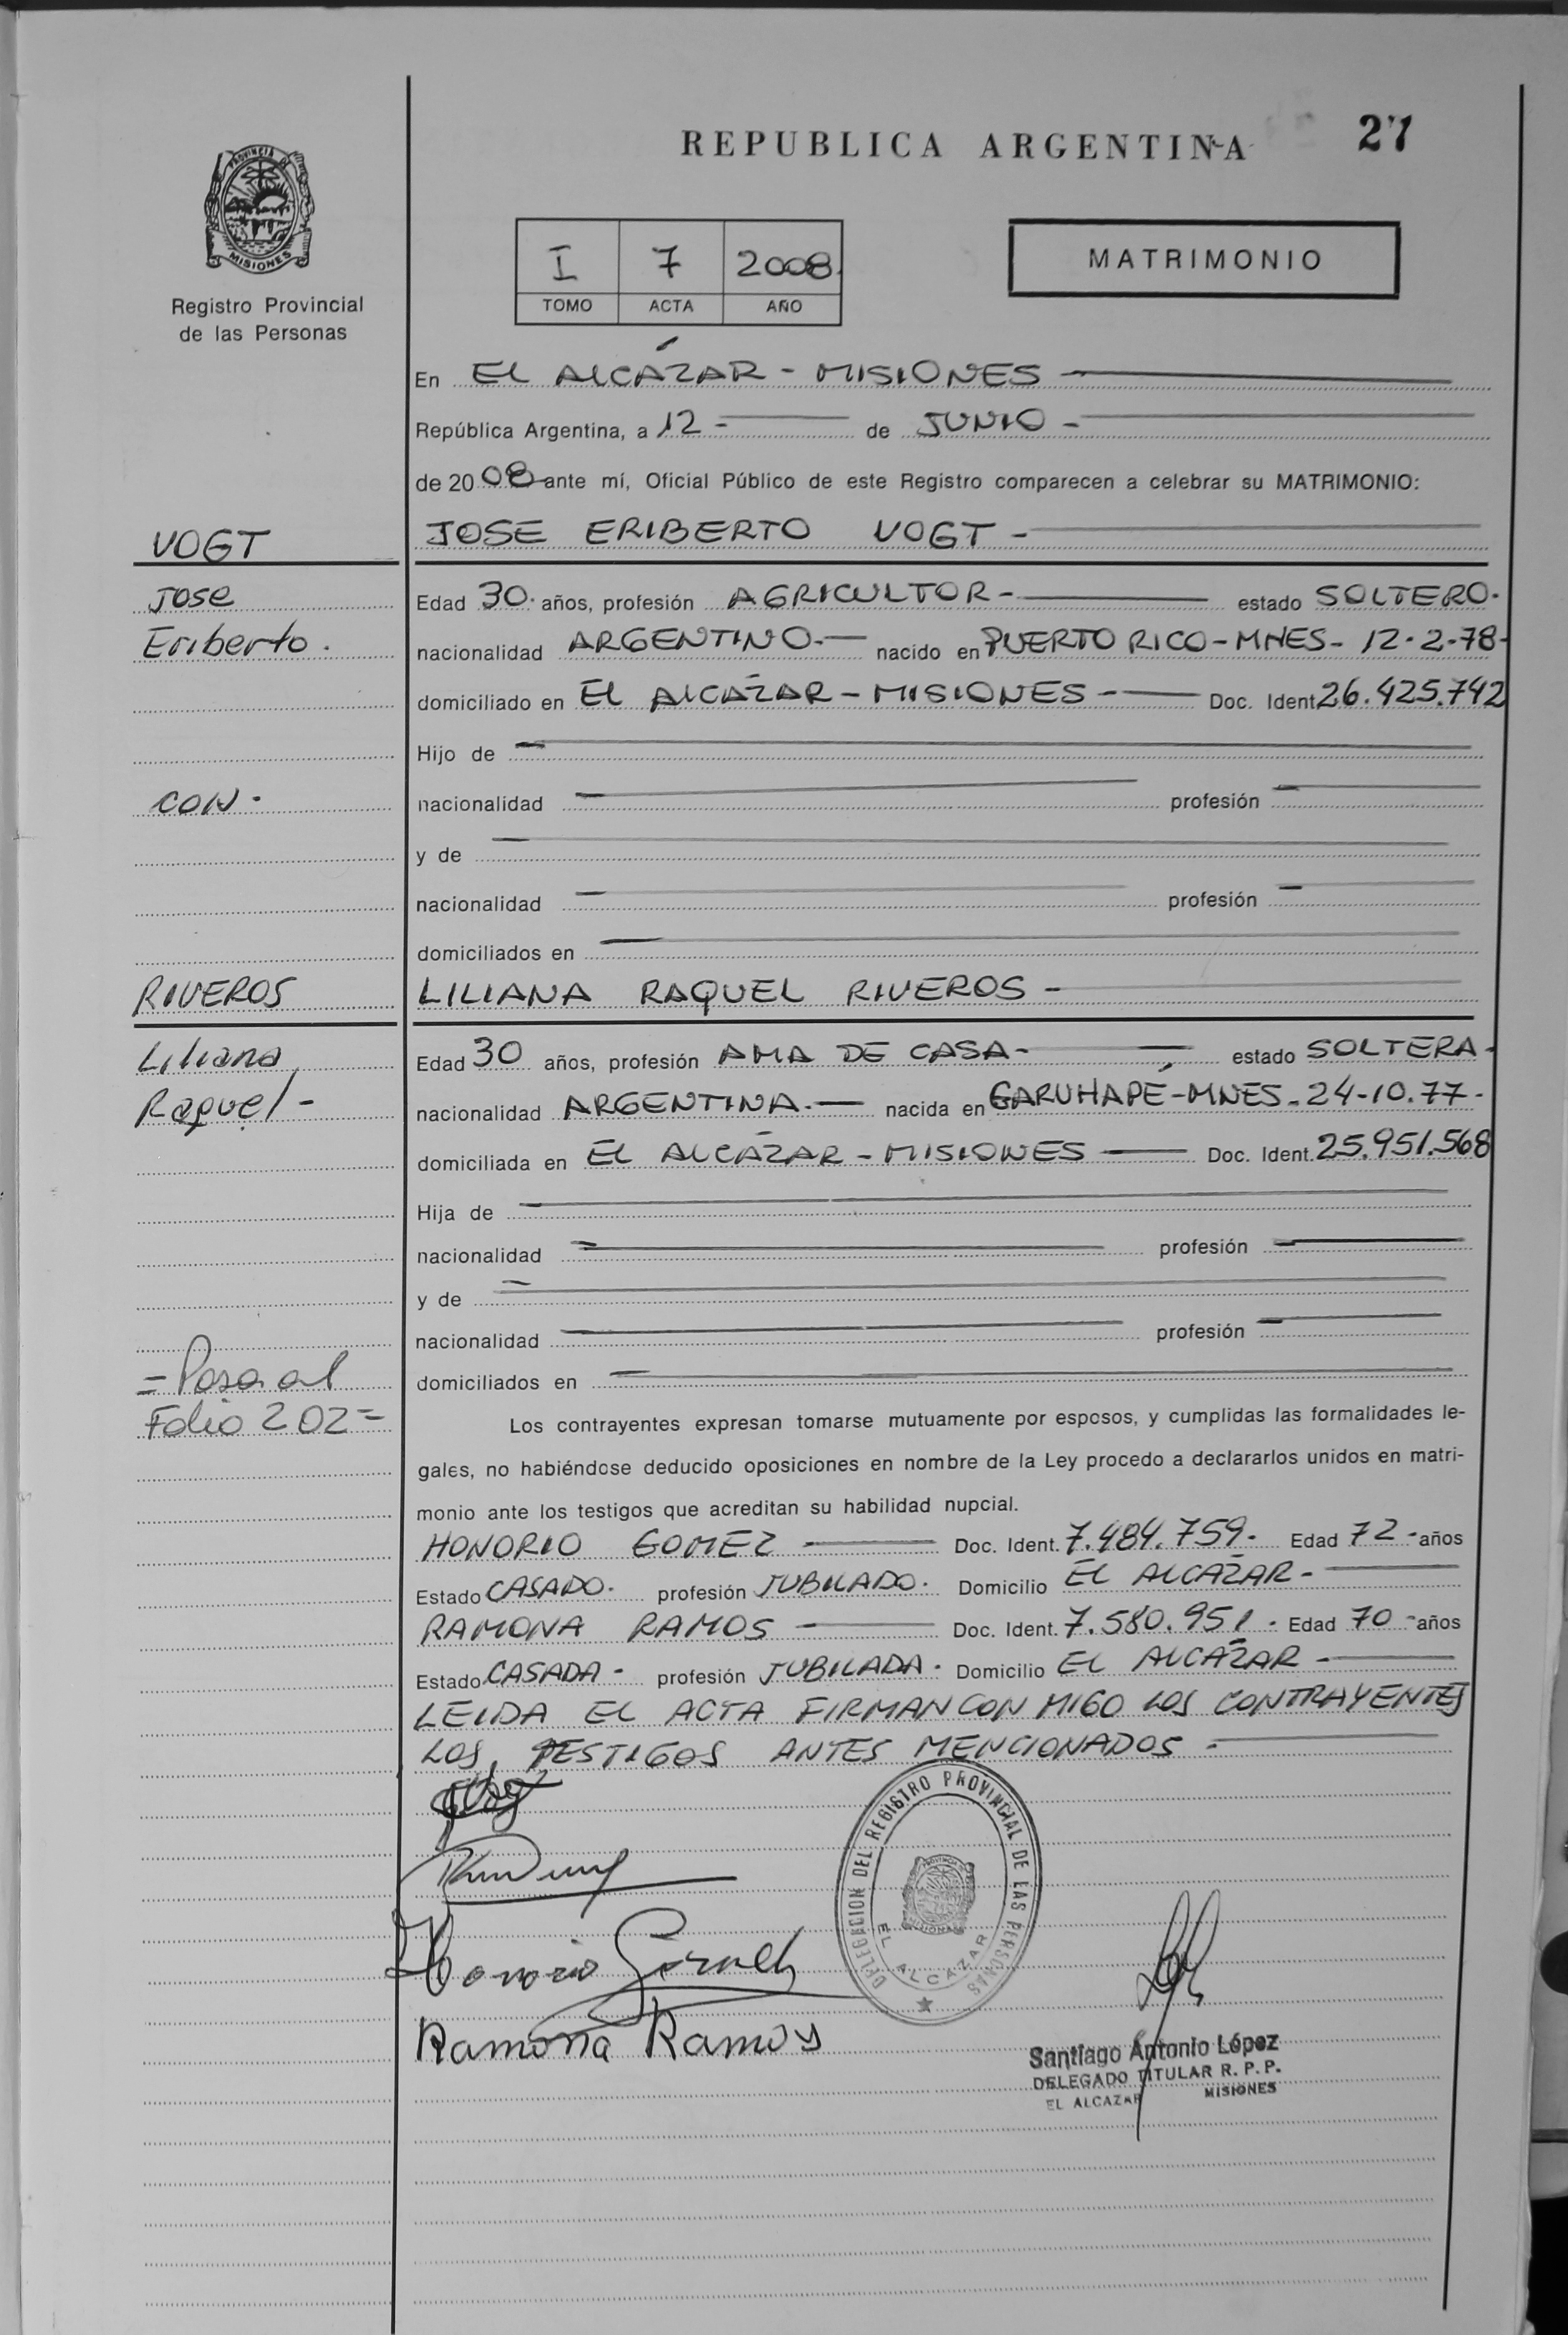 REPUBLICA ARGENTINA 27
PROVINCIA DE
MISIONES
Registro Provincial
de las Personas
I 7 2008
TOMO ACTA AÑO
MATRIMONIO
En EL ALCÁZAR - MISIONES
República Argentina, a 12 - de JUNIO -
de 20 08 ante mí, Oficial Público de este Registro comparecen a celebrar su MATRIMONIO:
VOGT
JOSE ERIBERTO VOGT -
Jose
Eriberto.
Edad 30. años, profesión AGRICULTOR - estado SOLTERO.
nacionalidad ARGENTINO.- nacido en PUERTO RICO - MNES - 12-2-78-
domiciliado en EL ALCÁZAR - MISIONES - Doc. Ident 26.425.742
Hijo de -
CON -
nacionalidad - profesión -
y de -
nacionalidad - profesión -
domiciliados en -
RIVEROS
LILIANA RAQUEL RIVEROS -
Liliana
Raquel -
Edad 30 años, profesión AMA DE CASA - estado SOLTERA -
nacionalidad ARGENTINA.- nacida en GARUHAPÉ-MNES - 24-10.77-
domiciliada en EL ALCÁZAR - MISIONES - Doc. Ident. 25.951.568
Hija de -
nacionalidad - profesión -
y de -
nacionalidad - profesión -
= Pasa al
Folio 202 =
domiciliados en -
Los contrayentes expresan tomarse mutuamente por esposos, y cumplidas las formalidades le-
gales, no habiéndose deducido oposiciones en nombre de la Ley procedo a declararlos unidos en matri-
monio ante los testigos que acreditan su habilidad nupcial.
HONORIO GOMEZ - Doc. Ident. 7.484.759- Edad 72 - años
Estado CASADO. profesión JUBILADO. Domicilio EL ALCÁZAR -
RAMONA RAMOS - Doc. Ident. 7.580.951 - Edad 70 - años
Estado CASADA - profesión JUBILADA. Domicilio EL ALCÁZAR -
LEIDA EL ACTA FIRMAN CON MIGO LOS CONTRAYENTES
LOS TESTIGOS ANTES MENCIONADOS -
DELEGACION DEL REGISTRO PROVINCIAL DE LAS PERSONAS
EL ALCAZAR
Honorio Gomez
Ramona Ramos
Santiago Antonio López
DELEGADO TITULAR R. P. P.
EL ALCAZAR MISIONES